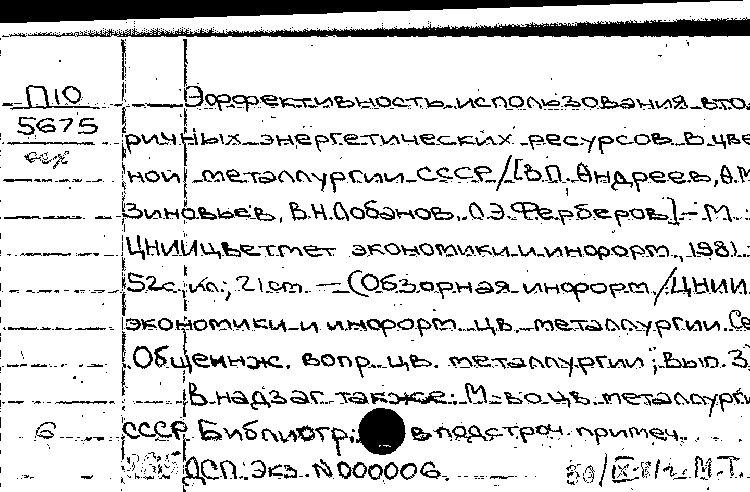 П10
5675
Эффективность использования вто
ричных энергетических ресурсов в цве
ной металлургии СССР/[В.П. Андреев, А.М
Зиновьев, В.Н. Лобанов, Л.Э. Ферберов]. – М. :
ЦНИИцветмет экономики и информ., 1981. –
52с. ил.; 21 cm. – (Обзорная информ. / ЦНИИ
экономики и информ. цв. металлургии. Се
Общеинж. вопр. цв. металлургии; Вып. 3)
В надзаг. также: М-во цв. металлурги
6 СССР. Библиогр. в подстроч. примеч.
ДСП. Экз. N 000006.
30/IX-81г. М.Т.